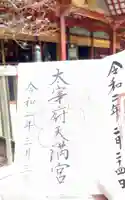 令和二年 二月二十四日
太宰府天満宮
令和二年二月二